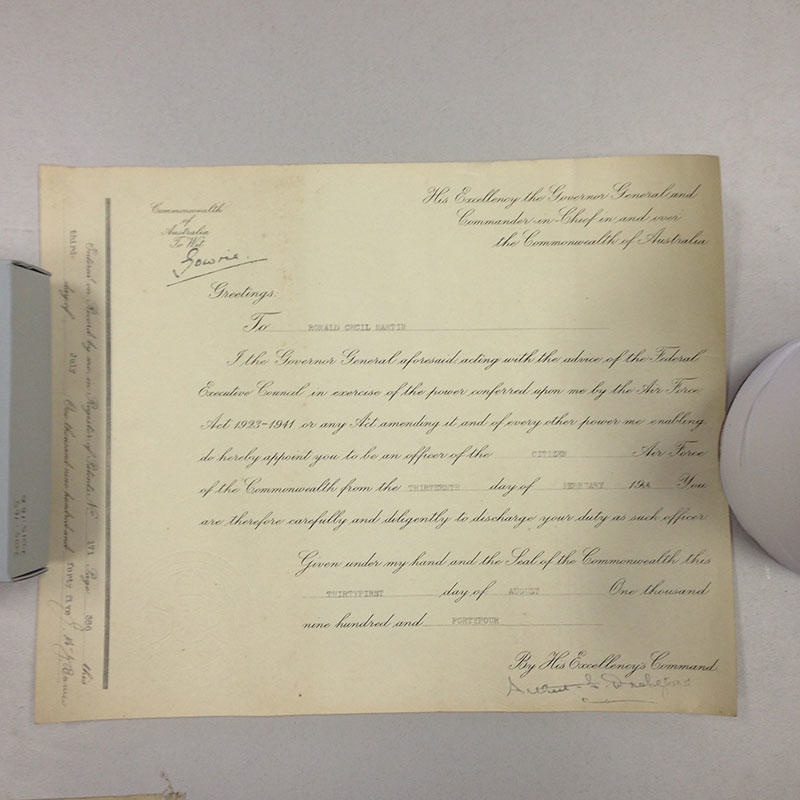 Commonwealth
of
Australia
To Wit
Gowrie.
His Excellency the Governor General and
Commander-in-Chief in and over
the Commonwealth of Australia
Greetings:
To RONALD CECIL MARTIN
I the Governor General aforesaid, acting with the advice of the Federal
Executive Council in exercise of the power conferred upon me by the Air Force
Act 1923-1941 or any Act amending it and of every other power me enabling
do hereby appoint you to be an officer of the CITIZEN Air Force
of the Commonwealth from the THIRTEENTH day of FEBRUARY 194 You
are therefore carefully and diligently to discharge your duty as such officer
Given under my hand and the Seal of the Commonwealth this
THIRTYFIRST day of AUGUST One thousand
nine hundred and FORTYFOUR
By His Excellency's Command.
Entered on Record by me, in Register of Patents No 171 Page 880 this
day of One thousand nine hundred and